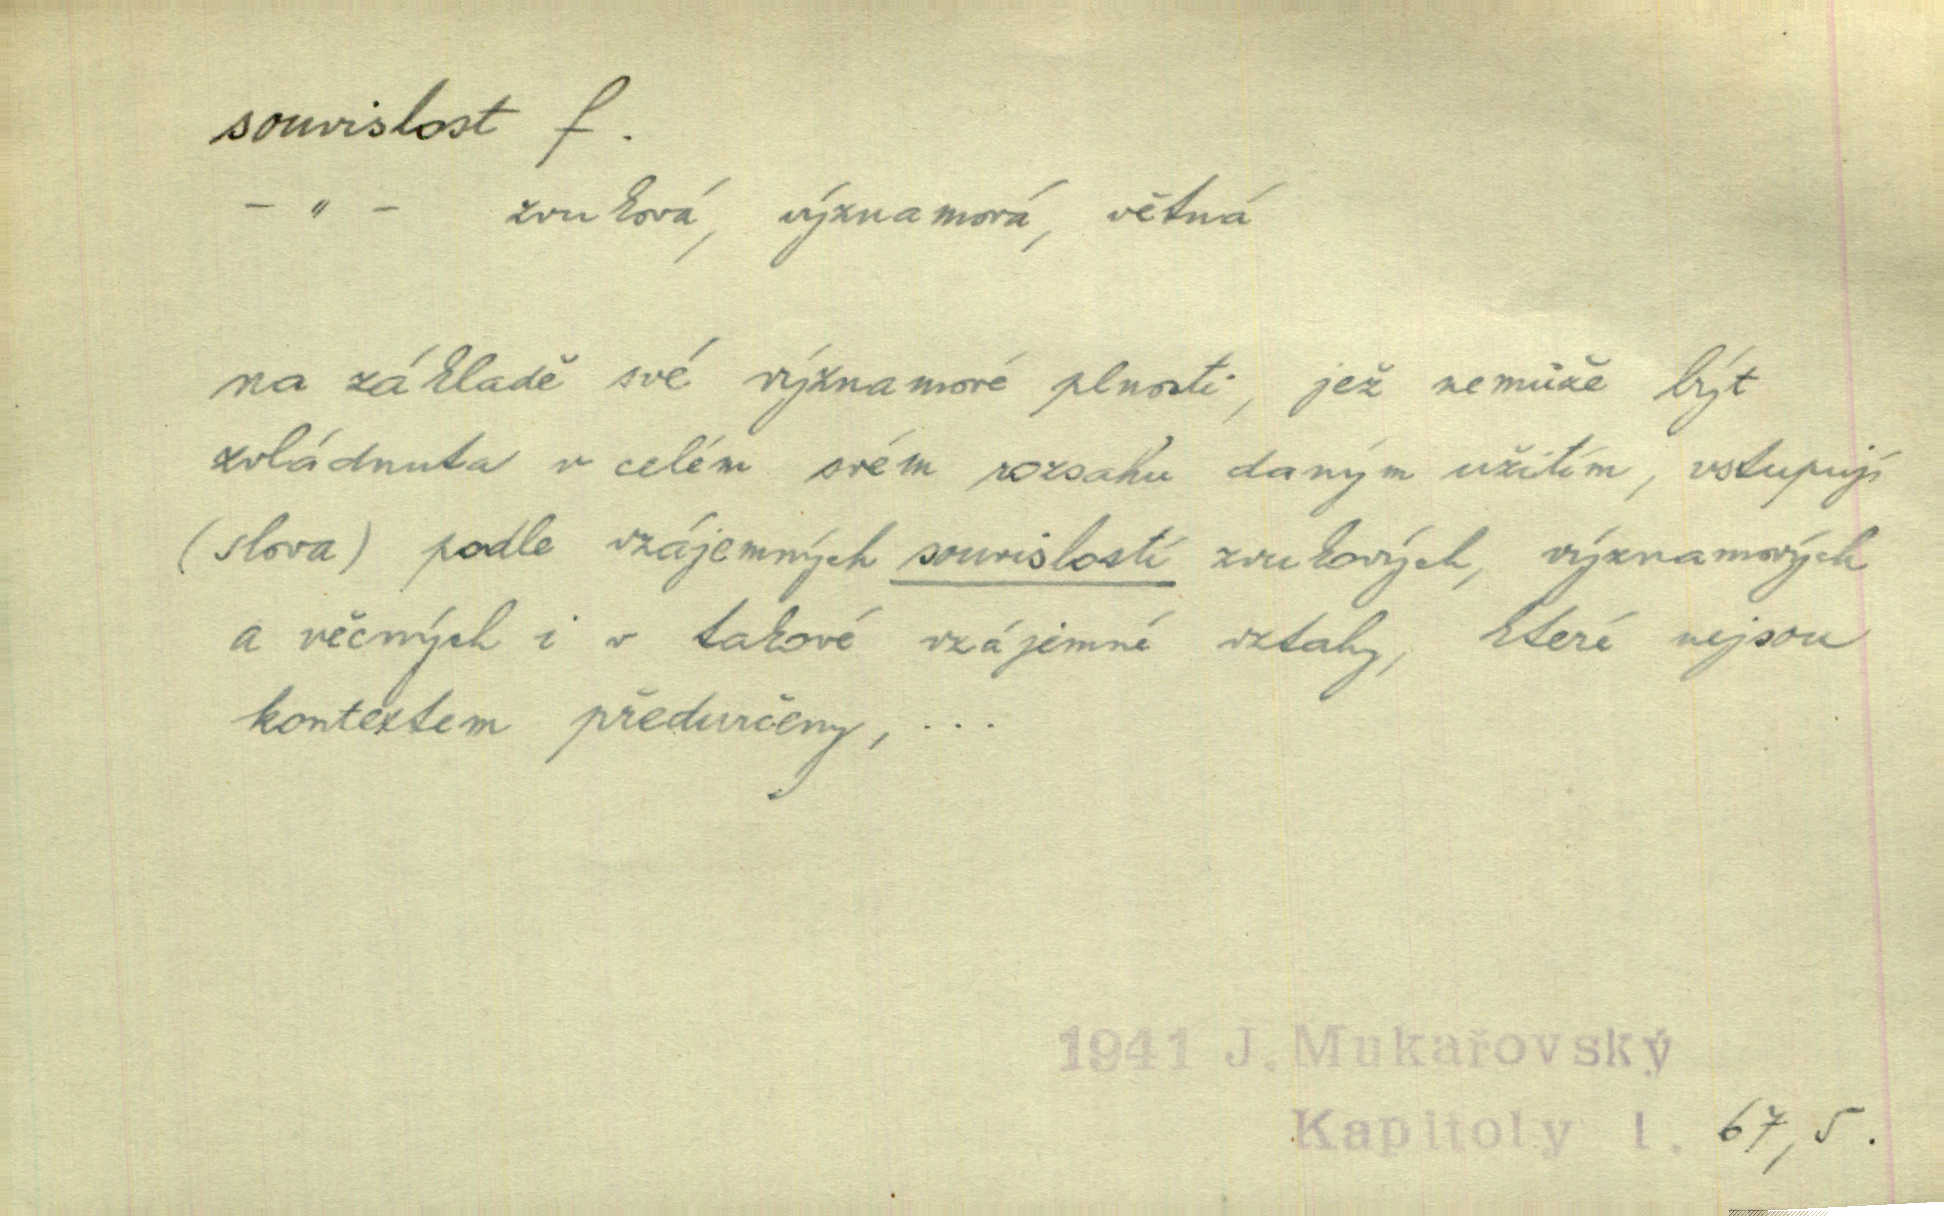 souvislost f.
– " – zvuková, významová, větná
na základě své významové plnosti, jež nemůže být
zvládnuta v celém svém rozsahu daným užitím, vstupují
(slova) podle vzájemných souvislostí zvukových, významových
a věcných i v takové vzájemné vztahy, které nejsou
kontextem předurčeny, ...
1941 J. Mukařovský
Kapitoly I. 67,5.